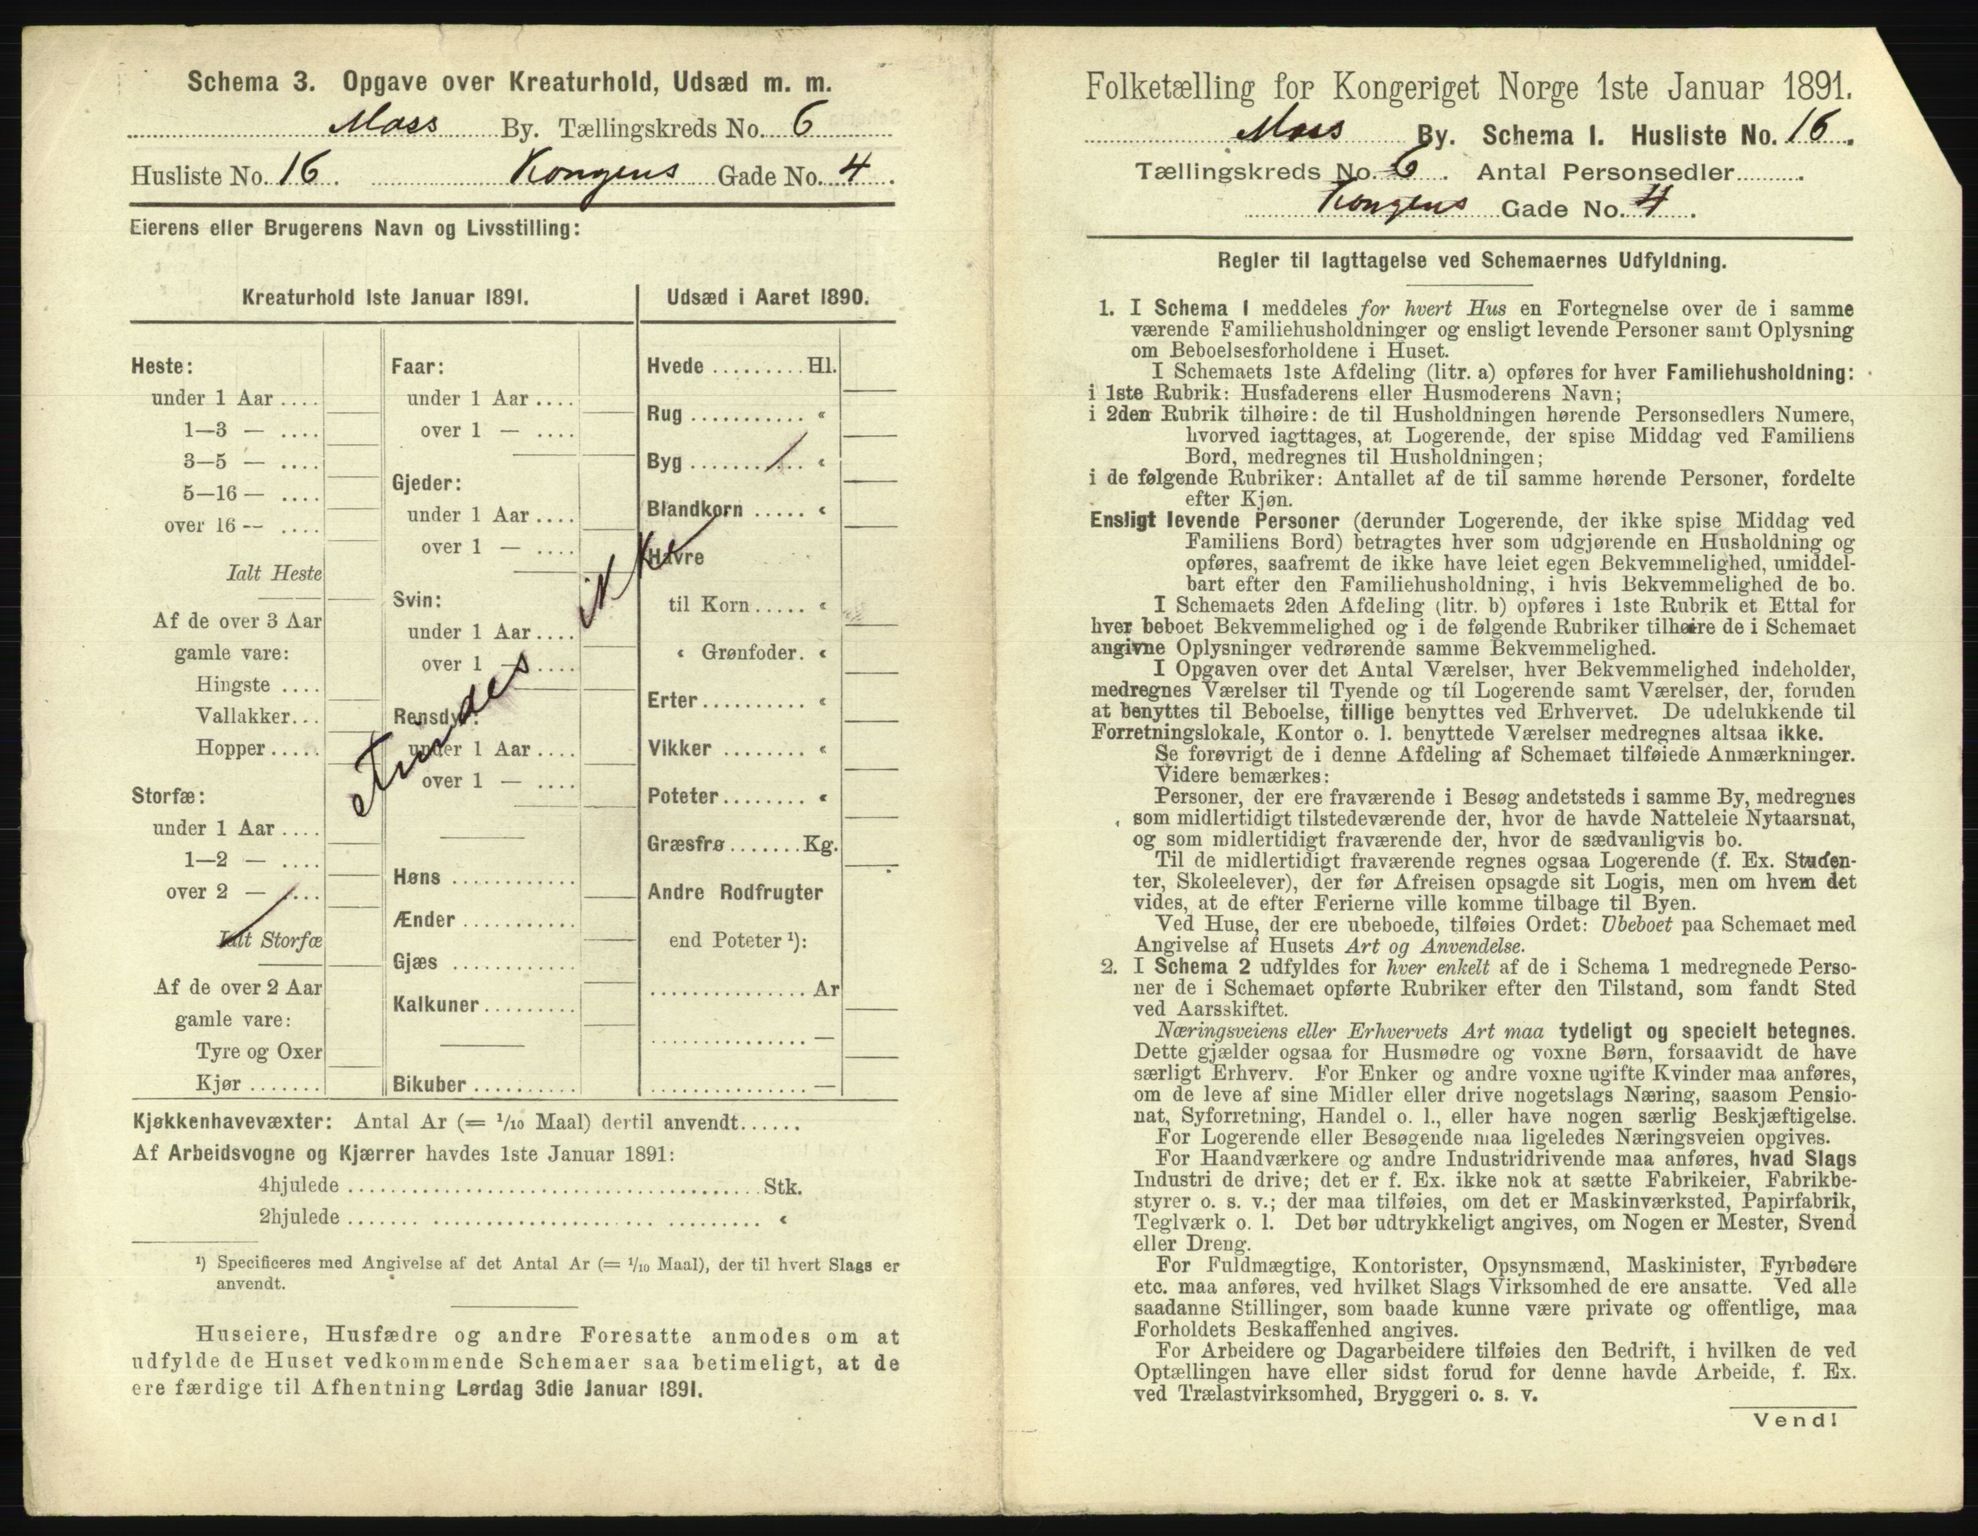 Schema 3. Opgave over Kreaturhold, Udsæd m. m.
Moss By. Tællingskreds No. 6
Husliste No. 16. Kongens Gade No. 4.
Eierens eller Brugerens Navn og Livsstilling:
Kreaturhold 1ste Januar 1891.
Heste:
under 1 Aar ....
1—3 — ....
3—5 — ....
5—16 — ....
over 16 — ....
Ialt Heste
Af de over 3 Aar
gamle vare:
Hingste ....
Vallakker...
Hopper.....
Storfæ:
under 1 Aar ....
1—2 — ....
over 2 — ....
Ialt Storfæ
Af de over 2 Aar
gamle vare:
Tyre og Oxer
Kjør .......
Faar:
under 1 Aar ....
over 1 — ....
Gjeder:
under 1 Aar ....
over 1 — ....
Svin:
under 1 Aar ....
over 1 — ....
Rensdyr:
under 1 Aar ....
over 1 — ....
Høns ............
Ænder ...........
Gjæs ............
Kalkuner .........
Bikuber ..........
Findes ikke
Udsæd i Aaret 1890.
Hvede ......... Hl.
Rug ........... «
Byg ........... «
Blandkorn ..... «
Havre
til Korn ..... «
« Grønfoder. «
Erter .......... «
Vikker ......... «
Poteter ........ «
Græsfrø ....... Kg.
Andre Rodfrugter
end Poteter ¹):
............... Ar
............... —
............... —
Kjøkkenhavevæxter: Antal Ar (= 1/10 Maal) dertil anvendt......
Af Arbeidsvogne og Kjærrer havdes 1ste Januar 1891:
4hjulede ........................................ Stk.
2hjulede ........................................ «
¹) Specificeres med Angivelse af det Antal Ar (= 1/10 Maal), der til hvert Slags er
anvendt.
Huseiere, Husfædre og andre Foresatte anmodes om at
udfylde de Huset vedkommende Schemaer saa betimeligt, at de
ere færdige til Afhentning Lørdag 3die Januar 1891.
Folketælling for Kongeriget Norge 1ste Januar 1891.
Moss By. Schema 1. Husliste No. 16.
Tællingskreds No. 6. Antal Personsedler..........
Kongens Gade No. 4.
Regler til Iagttagelse ved Schemaernes Udfyldning.
1. I Schema 1 meddeles for hvert Hus en Fortegnelse over de i samme
værende Familiehusholdninger og ensligt levende Personer samt Oplysning
om Beboelsesforholdene i Huset.
I Schemaets 1ste Afdeling (litr. a) opføres for hver Familiehusholdning:
i 1ste Rubrik: Husfaderens eller Husmoderens Navn;
i 2den Rubrik tilhøire: de til Husholdningen hørende Personsedlers Numere,
hvorved iagttages, at Logerende, der spise Middag ved Familiens
Bord, medregnes til Husholdningen;
i de følgende Rubriker: Antallet af de til samme hørende Personer, fordelte
efter Kjøn.
Ensligt levende Personer (derunder Logerende, der ikke spise Middag ved
Familiens Bord) betragtes hver som udgjørende en Husholdning og
opføres, saafremt de ikke have leiet egen Bekvemmelighed, umiddel-
bart efter den Familiehusholdning, i hvis Bekvemmelighed de bo.
I Schemaets 2den Afdeling (litr. b) opføres i 1ste Rubrik et Ettal for
hver beboet Bekvemmelighed og i de følgende Rubriker tilhøire de i Schemaet
angivne Oplysninger vedrørende samme Bekvemmelighed.
I Opgaven over det Antal Værelser, hver Bekvemmelighed indeholder,
medregnes Værelser til Tyende og til Logerende samt Værelser, der, foruden
at benyttes til Beboelse, tillige benyttes ved Erhvervet. De udelukkende til
Forretningslokale, Kontor o. l. benyttede Værelser medregnes altsaa ikke.
Se forøvrigt de i denne Afdeling af Schemaet tilføiede Anmærkninger.
Videre bemærkes:
Personer, der ere fraværende i Besøg andetsteds i samme By, medregnes
som midlertidigt tilstedeværende der, hvor de havde Natteleie Nytaarsnat,
og som midlertidigt fraværende der, hvor de sædvanligvis bo.
Til de midlertidigt fraværende regnes ogsaa Logerende (f. Ex. Studen-
ter, Skoleelever), der før Afreisen opsagde sit Logis, men om hvem det
vides, at de efter Ferierne ville komme tilbage til Byen.
Ved Huse, der ere ubeboede, tilføies Ordet: Ubeboet paa Schemaet med
Angivelse af Husets Art og Anvendelse.
2. I Schema 2 udfyldes for hver enkelt af de i Schema 1 medregnede Perso-
ner de i Schemaet opførte Rubriker efter den Tilstand, som fandt Sted
ved Aarsskiftet.
Næringsveiens eller Erhvervets Art maa tydeligt og specielt betegnes.
Dette gjælder ogsaa for Husmødre og voxne Børn, forsaavidt de have
særligt Erhverv. For Enker og andre voxne ugifte Kvinder maa anføres,
om de leve af sine Midler eller drive nogetslags Næring, saasom Pensio-
nat, Syforretning, Handel o. l., eller have nogen særlig Beskjæftigelse.
For Logerende eller Besøgende maa ligeledes Næringsveien opgives.
For Haandværkere og andre Industridrivende maa anføres, hvad Slags
Industri de drive; det er f. Ex. ikke nok at sætte Fabrikeier, Fabrikbe-
styrer o. s. v.; der maa tilføies, om det er Maskinværksted, Papirfabrik,
Teglværk o. l. Det bør udtrykkeligt angives, om Nogen er Mester, Svend
eller Dreng.
For Fuldmægtige, Kontorister, Opsynsmænd, Maskinister, Fyrbødere
etc. maa anføres, ved hvilket Slags Virksomhed de ere ansatte. Ved alle
saadanne Stillinger, som baade kunne være private og offentlige, maa
Forholdets Beskaffenhed angives.
For Arbeidere og Dagarbeidere tilføies den Bedrift, i hvilken de ved
Optællingen have eller sidst forud for denne havde Arbeide, f. Ex.
ved Trælastvirksomhed, Bryggeri o. s. v.
Vend!